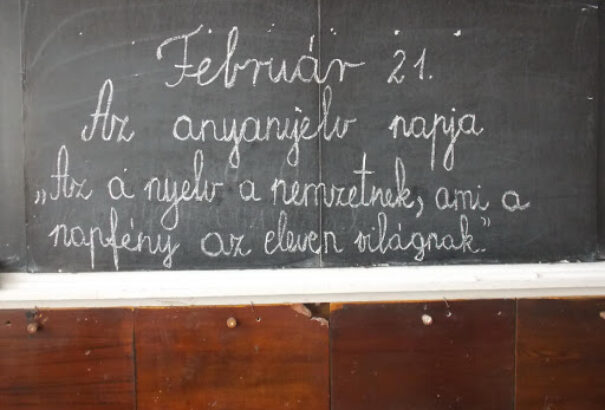 Február 21.
Az anyanyelv napja
„Az a nyelv a nemzetnek, ami a
napfény az eleven világnak.”